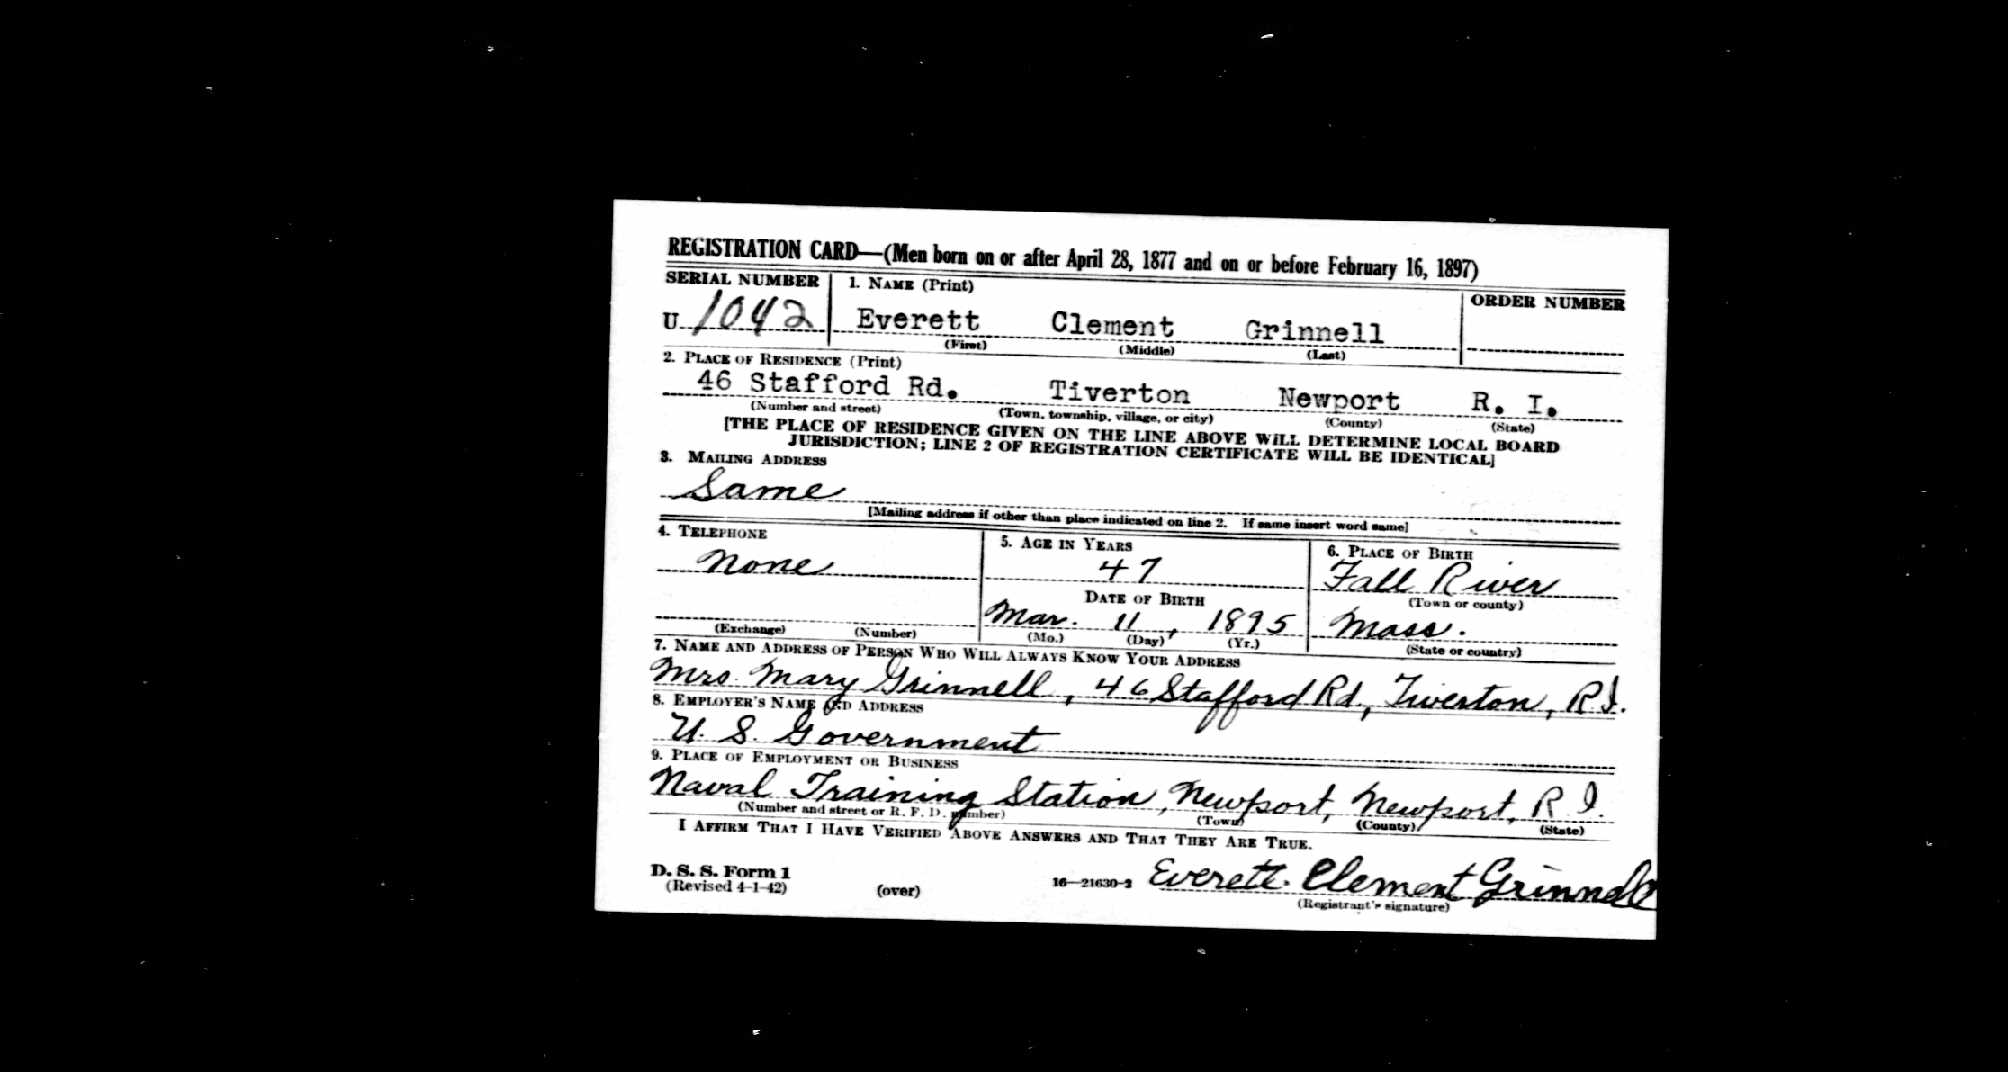 REGISTRATION CARD—(Men born on or after April 28, 1877 and on or before February 16, 1897)
SERIAL NUMBER 1. NAME (Print) ORDER NUMBER
U 1042 Everett Clement Grinnell
(First) (Middle) (Last)
2. PLACE OF RESIDENCE (Print)
46 Stafford Rd. Tiverton Newport R. I.
(Number and street) (Town, township, village, or city) (County) (State)
[THE PLACE OF RESIDENCE GIVEN ON THE LINE ABOVE WILL DETERMINE LOCAL BOARD
JURISDICTION; LINE 2 OF REGISTRATION CERTIFICATE WILL BE IDENTICAL]
3. MAILING ADDRESS
Same
[Mailing address if other than place indicated on line 2. If same insert word same]
4. TELEPHONE 5. AGE IN YEARS 6. PLACE OF BIRTH
None 47 Fall River
DATE OF BIRTH (Town or county)
Mar. 11, 1895 Mass.
(Exchange) (Number) (Mo.) (Day) (Yr.) (State or country)
7. NAME AND ADDRESS OF PERSON WHO WILL ALWAYS KNOW YOUR ADDRESS
Mrs. Mary Grinnell, 46 Stafford Rd., Tiverton, R.I.
8. EMPLOYER'S NAME AND ADDRESS
U. S. Government
9. PLACE OF EMPLOYMENT OR BUSINESS
Naval Training Station, Newport, Newport, R I.
(Number and street or R. F. D. number) (Town) (County) (State)
I AFFIRM THAT I HAVE VERIFIED ABOVE ANSWERS AND THAT THEY ARE TRUE.
D. S. S. Form 1
(Revised 4-1-42) (over) 16—21630-2 Everett Clement Grinnell
(Registrant's signature)